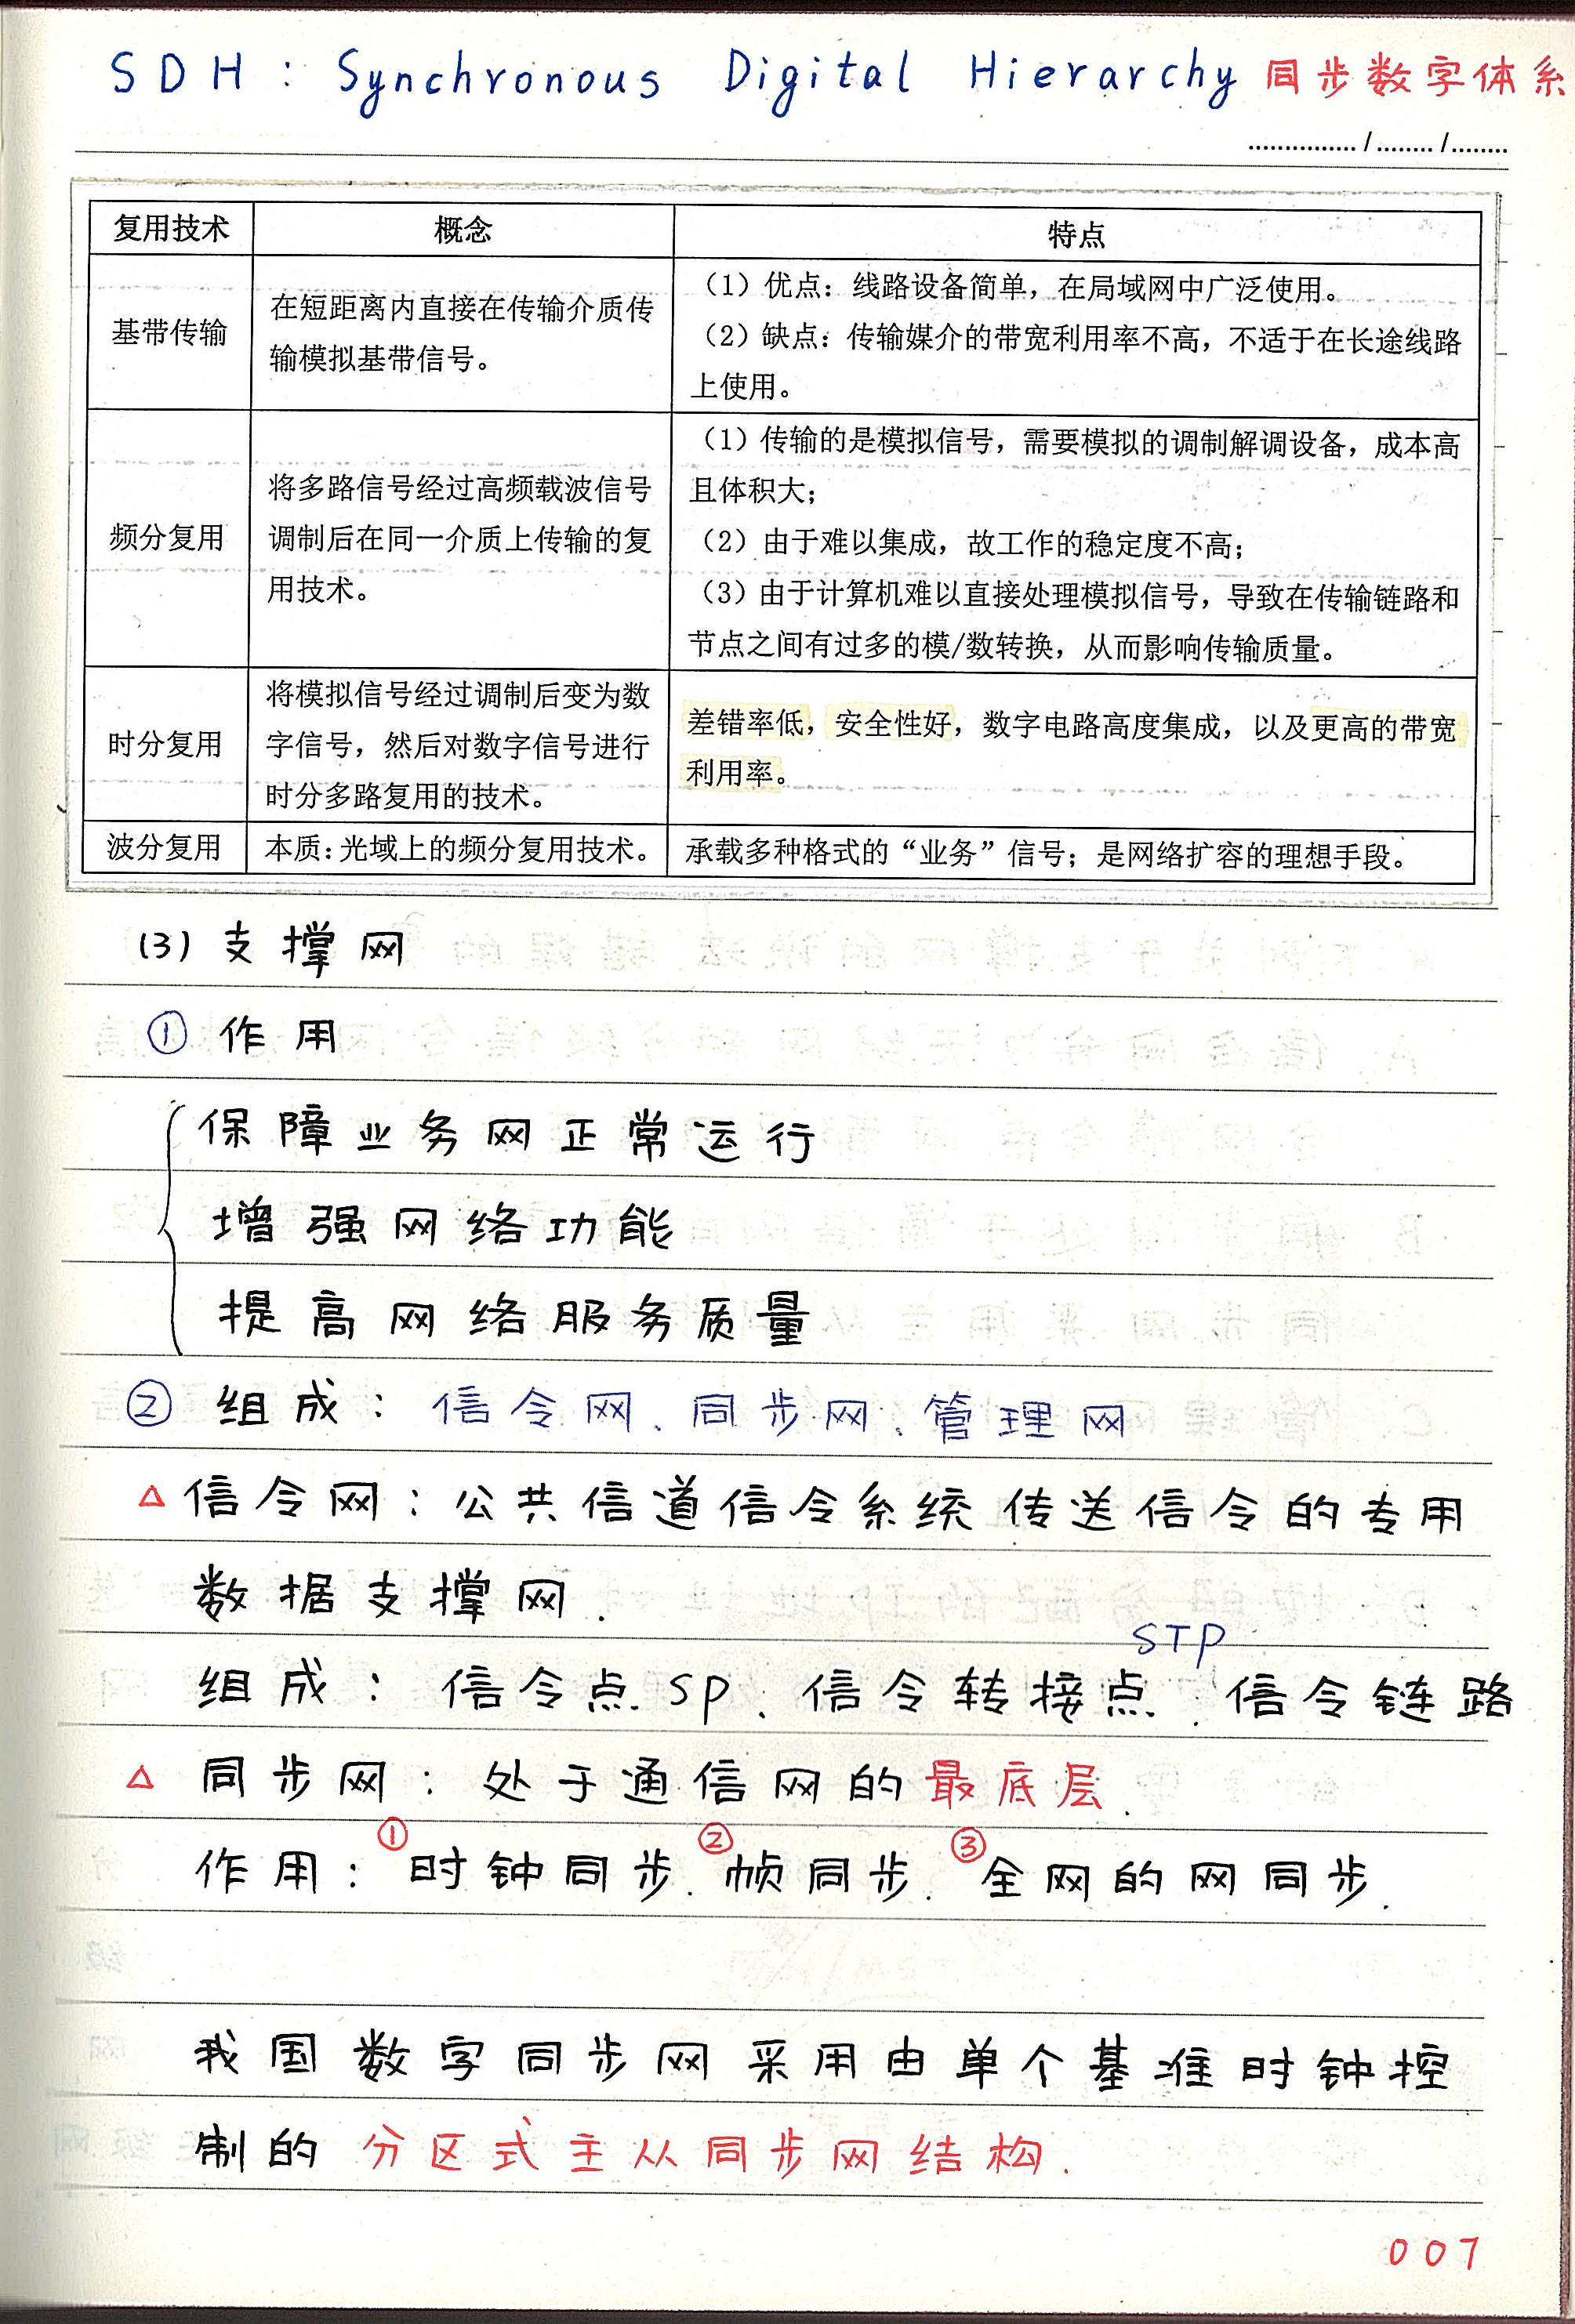 SDH: Synchronous Digital Hierarchy 同步数字体系
............... / ........ / ........
复用技术 概念 特点
基带传输
在短距离内直接在传输介质传
输模拟基带信号。
（1）优点：线路设备简单，在局域网中广泛使用。
（2）缺点：传输媒介的带宽利用率不高，不适于在长途线路
上使用。
频分复用
将多路信号经过高频载波信号
调制后在同一介质上传输的复
用技术。
（1）传输的是模拟信号，需要模拟的调制解调设备，成本高
且体积大；
（2）由于难以集成，故工作的稳定度不高；
（3）由于计算机难以直接处理模拟信号，导致在传输链路和
节点之间有过多的模/数转换，从而影响传输质量。
时分复用
将模拟信号经过调制后变为数
字信号，然后对数字信号进行
时分多路复用的技术。
差错率低，安全性好，数字电路高度集成，以及更高的带宽
利用率。
波分复用 本质：光域上的频分复用技术。 承载多种格式的“业务”信号；是网络扩容的理想手段。
(3) 支撑网
① 作用
保障业务网正常运行
增强网络功能
提高网络服务质量
② 组成：信令网、同步网、管理网
△ 信令网：公共信道信令系统传送信令的专用
数据支撑网.
STP
组成：信令点 SP、信令转接点、信令链路
△ 同步网：处于通信网的最底层.
作用：①时钟同步、②帧同步、③全网的网同步.
我国数字同步网采用由单个基准时钟控
制的分区式主从同步网结构.
007